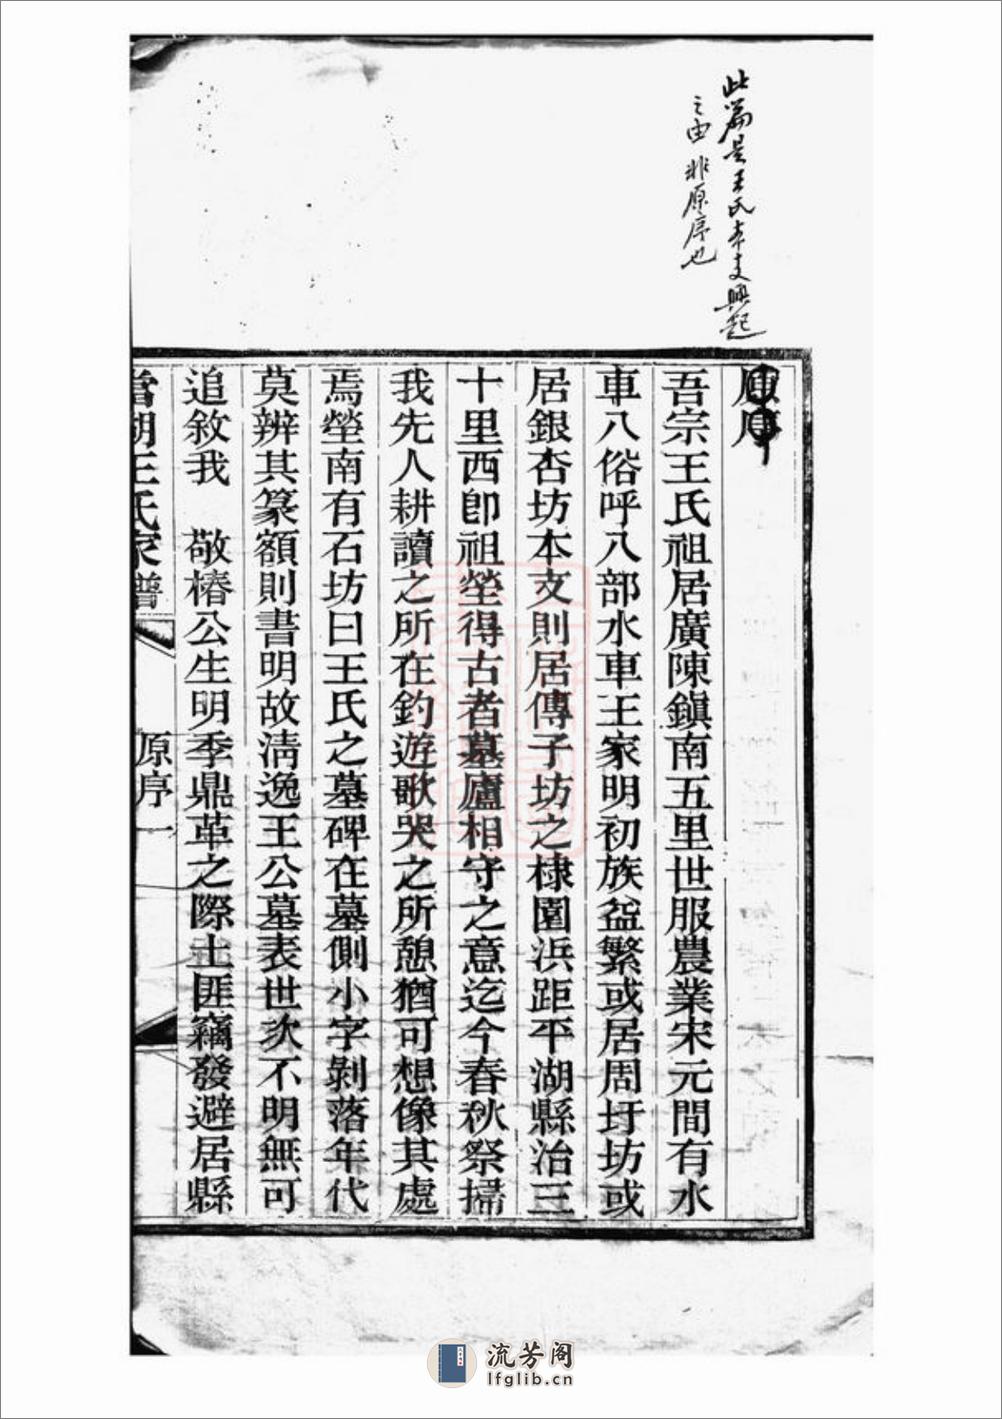 此篇是王氏本支興起
之由非原序也
原序
吾宗王氏祖居廣陳鎮南五里世服農業宋元間有水
車八俗呼八部水車王家明初族益繁或居周圩坊或
居銀杏坊本支則居傳子坊之棣園浜距平湖縣治三
十里西卽祖塋得古者墓廬相守之意迄今春秋祭掃
我先人耕讀之所在釣遊歌哭之所憩猶可想像其處
焉塋南有石坊曰王氏之墓碑在墓側小字剝落年代
莫辨其篆額則書明故淸逸王公墓表世次不明無可
追敘我　敬椿公生明季鼎革之際土匪竊發避居縣
當湖王氏家譜　原序　一
流芳阁
lfglib.cn